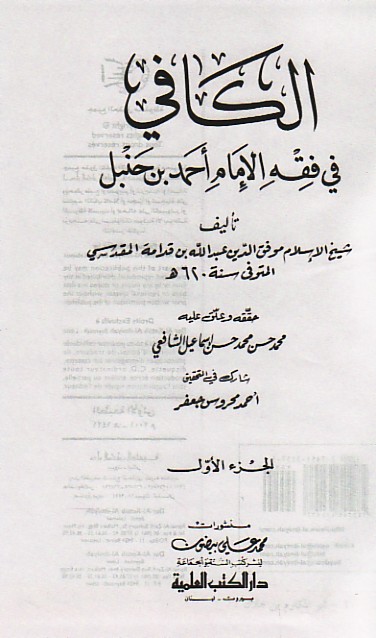 الكافي
في فقه الإمام أحمد بن حنبل
تأليف
شيخ الإسلام موفق الدين عبد الله بن قدامة المقدسي
المتوفى سنة ٦٢٠ هـ
حققه وعلق عليه
محمد حسن محمد حسن إسماعيل الشافعي
شارك في التحقيق
أحمد محروس جعفر
الجزء الأول
منشورات
محمد علي بيضون
لنشر كتب السنة والجماعة
دار الكتب العلمية
بيروت - لبنان